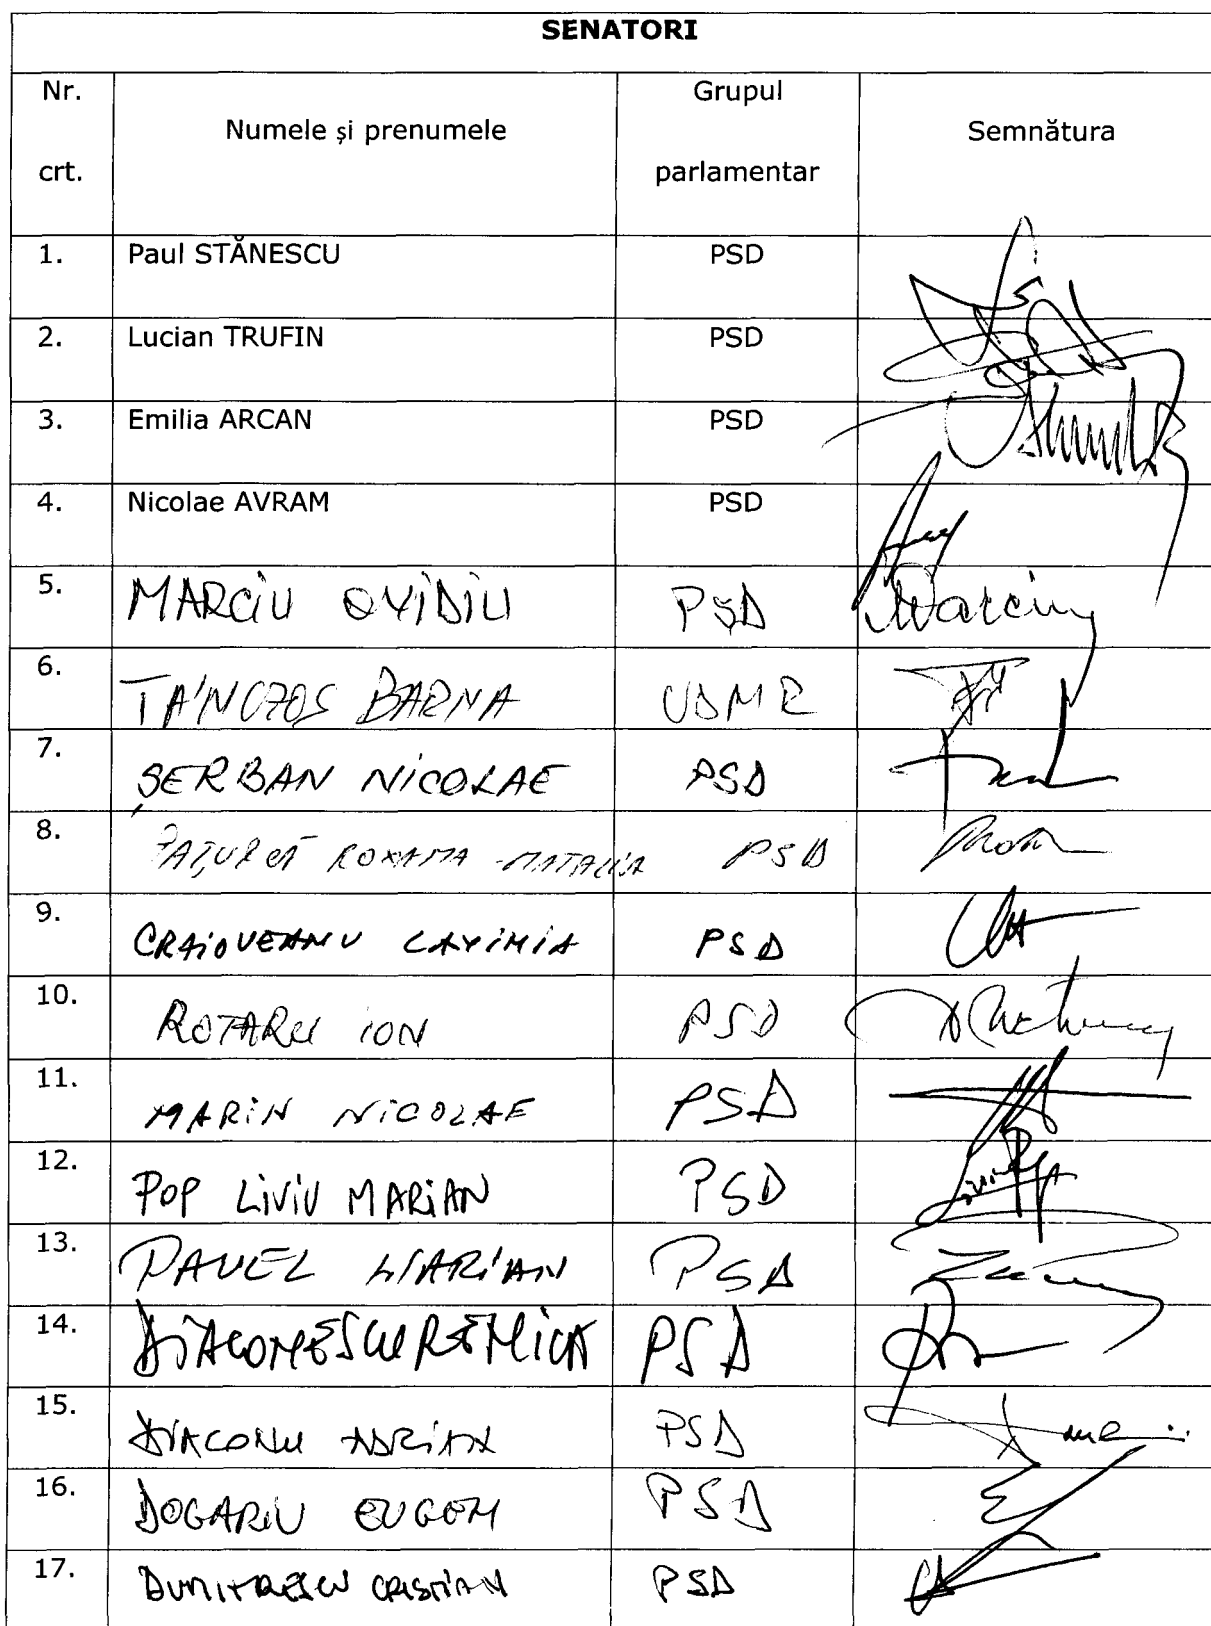 SENATORI
Nr. crt. Numele și prenumele Grupul parlamentar Semnătura
1. Paul STĂNESCU PSD
2. Lucian TRUFIN PSD
3. Emilia ARCAN PSD
4. Nicolae AVRAM PSD
5. MARCIU OVIDIU PSD Marciu
6. TÁNCZOS BARNA UDMR
7. ȘERBAN NICOLAE PSD
8. PAȚURCĂ ROXANA-NATALIA PSD
9. CRAIOVEANU LAVINIA PSD
10. ROTARU ION PSD
11. MARIN NICOLAE PSD
12. POP LIVIU MARIAN PSD
13. PAVEL MARIAN PSD
14. DIACONESCU RENICA PSD
15. DIACONU ADRIAN PSD
16. DOGARIU EUGEN PSD
17. DUMITRESCU CRISTIAN PSD